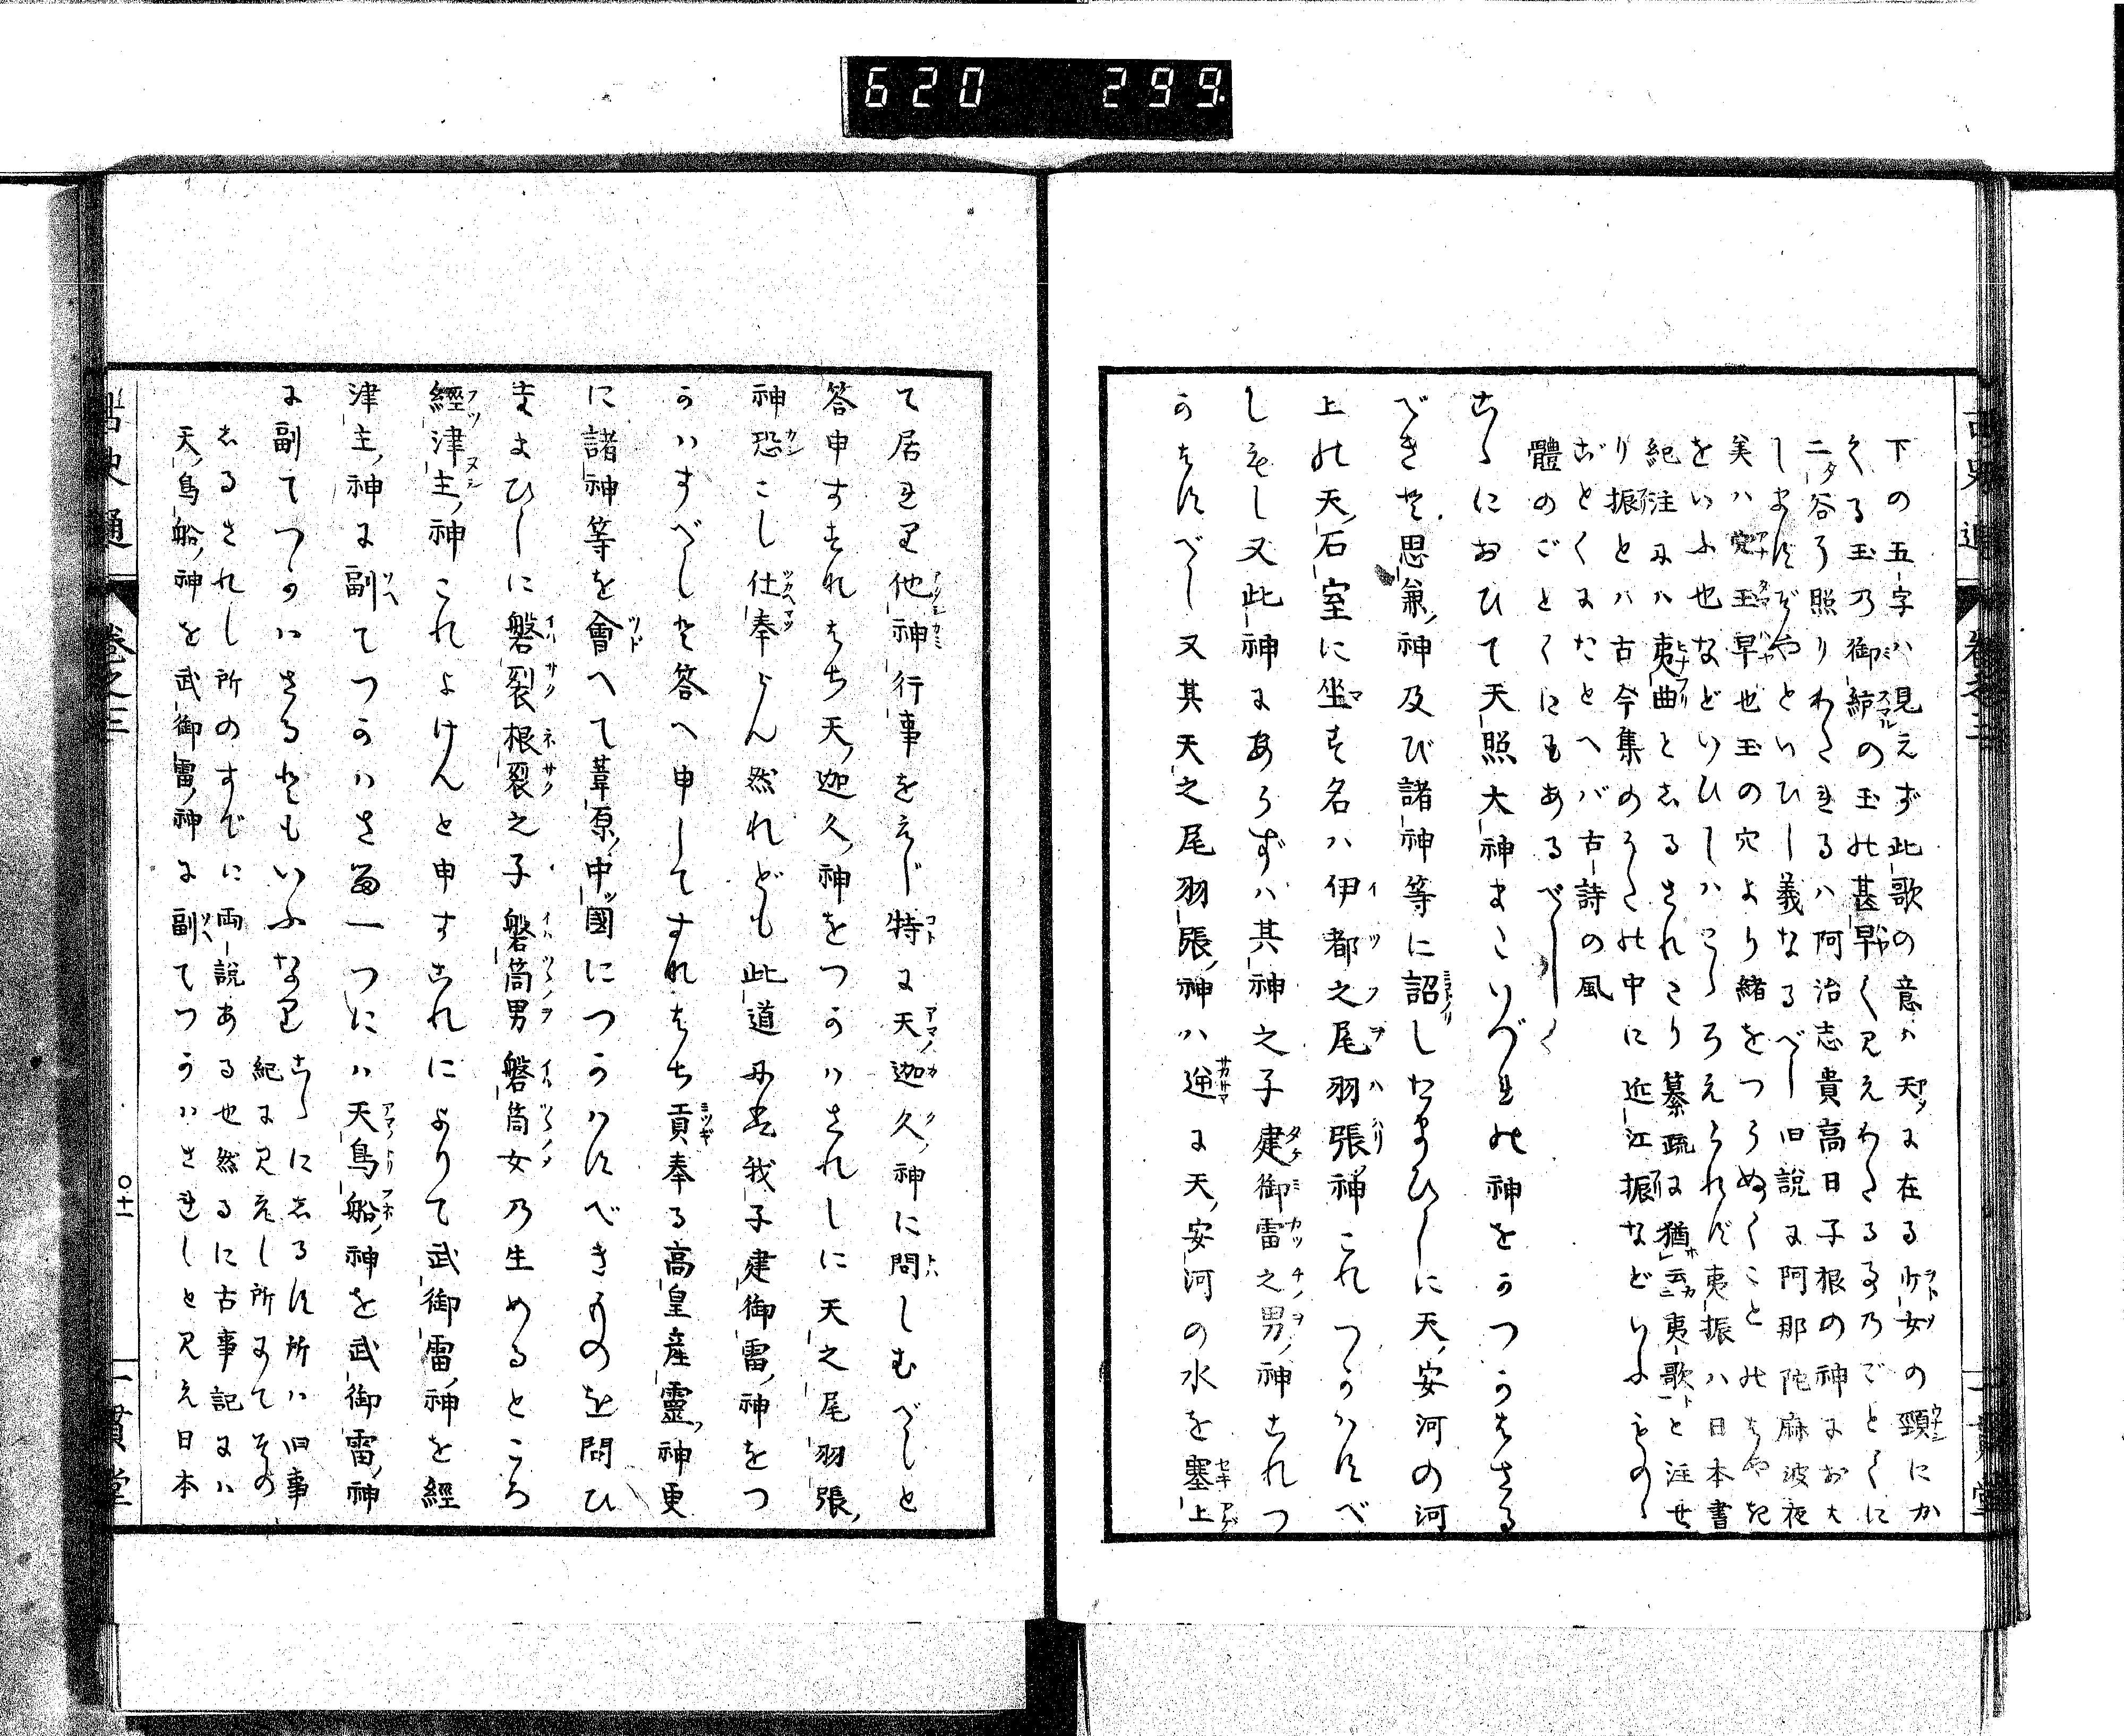 620 299.
古史通 卷之三
下の五字ハ見えず此歌の意ハ天に在る少女の頸にか
くる玉乃御統の玉の甚早く見えわたる事乃ごとくに
二谷ろ照りわたきるハ阿治志貴高日子根の神におは
しまにぞやといひし義なるべし旧説に阿那陀麻波夜
美ハ穴玉早也玉の穴より緒をつらぬくことのはやき
をいふ也などいひしハこゝろえられず夷振ハ日本書
紀注にハ夷曲としるされたり纂疏に猶云夷歌と注せ
り振とハ古今集のうたの中に近江振などいふものゝ
ごとくまたとへバ古詩の風
體のごとくにもあるべし
こゝにおひて天照大神またいづれの神をつかはさる
べきと思兼神及び諸神等に詔したまひしに天安河の河
上の天石室に坐す名ハ伊都之尾羽張神これつかハすべ
しもし又此神にあらずハ其神之子建御雷之男神これつ
かはすべし又其天之尾羽張神ハ逆に天安河の水を塞上
て居れば他神行事をえじ特に天迦久神に問しむべしと
答申すすなはち天迦久神をつかハされしに天之尾羽張
神恐こし仕奉らん然れども此道にハ我子建御雷神をつ
かハすべしと答へ申してすなはち貢奉る高皇産靈神更
に諸神等を會へて葦原中國につかハすべきものを問ひ
たまひしに磐裂根裂之子磐筒男磐筒女乃生めるところ
經津主神これよけんと申すこれによりて武御雷神を經
津主神に副てつかハさる一つにハ天鳥船神を武御雷神
に副てつかハさるともいふなり
こゝにしるす所ハ旧事
紀に見えし所にてその
しるされし所のすでに両説ある也然るに古事記にハ
天鳥船神を武御雷神に副てつかハされしと見え日本
古史通 卷之三 〇十一 一貫堂